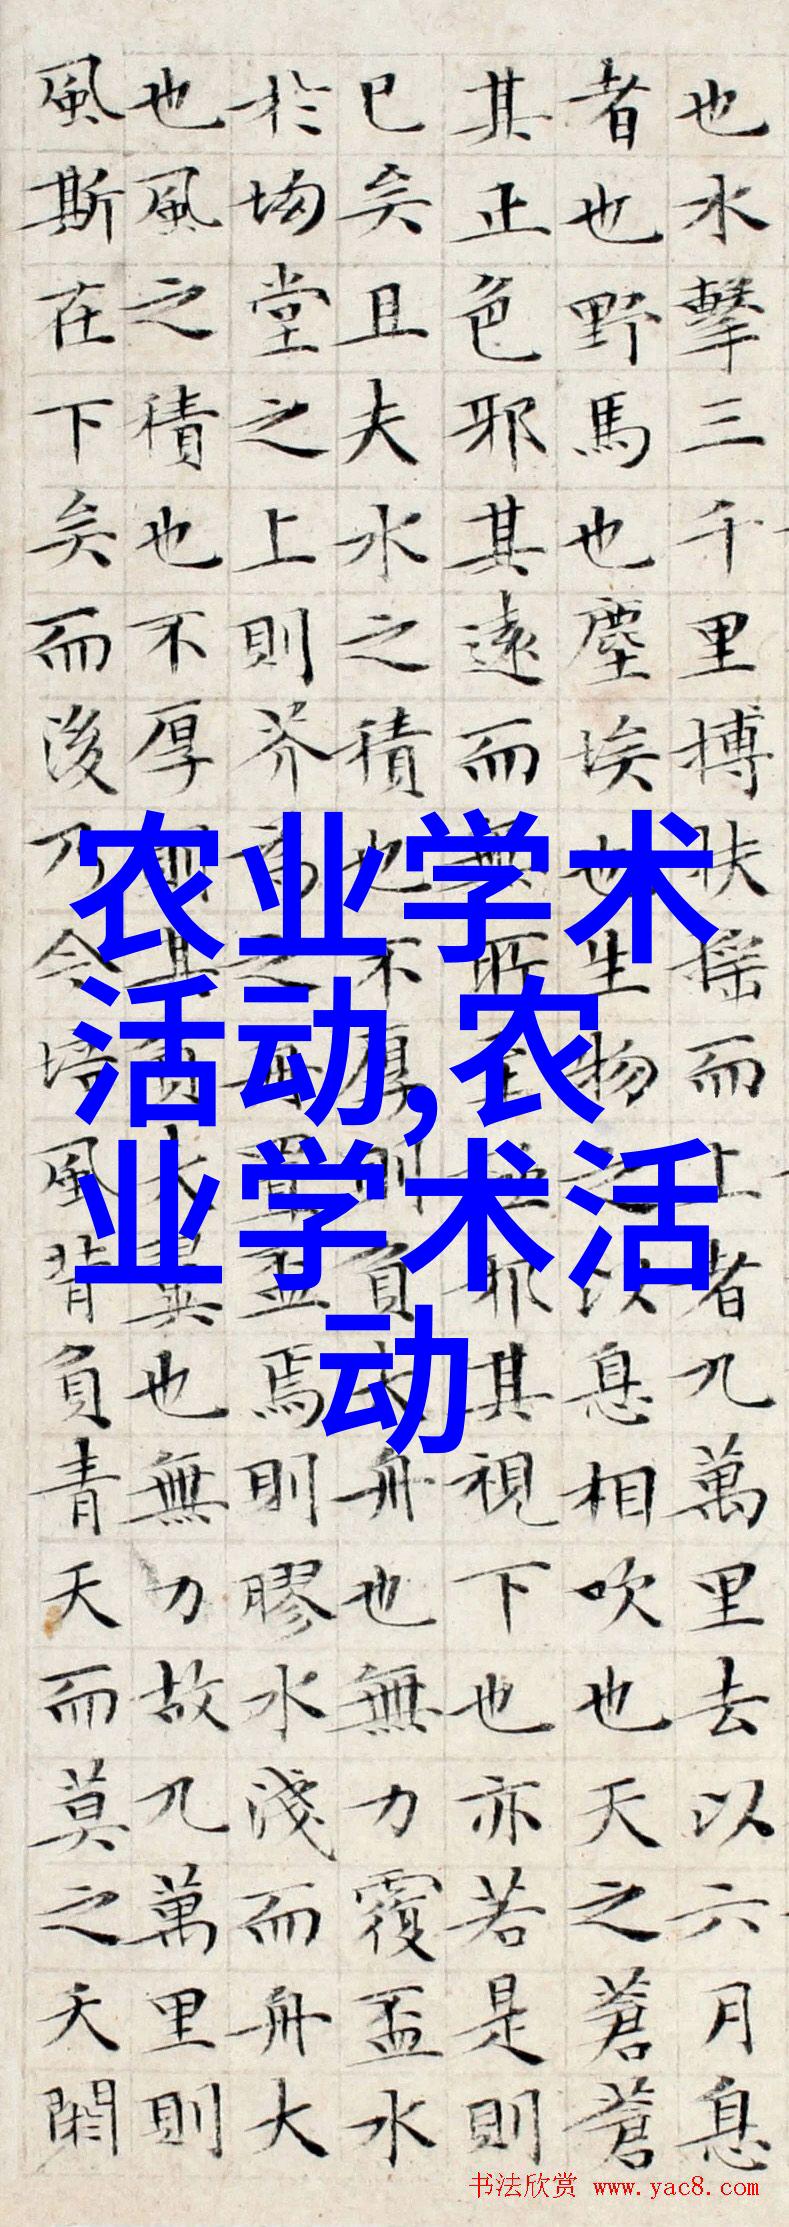 也水擊三千里搏扶搖而上者九萬里去以六月息
者也野馬也塵埃也生物之以息相吹也天之蒼蒼
其正色邪其遠而無所至極邪其視下也亦若是則
已矣且夫水之積也不厚則負大舟也無力覆盃水
於坳堂之上則芥為之舟置盃焉則膠水淺而舟大
也風之積也不厚則其負大翼也無力故九萬里則
風斯在下矣而後乃今培風背負青天而莫之夭閼
农业学术
活动,农
业学术活
动
书法欣赏 www.yac8.com